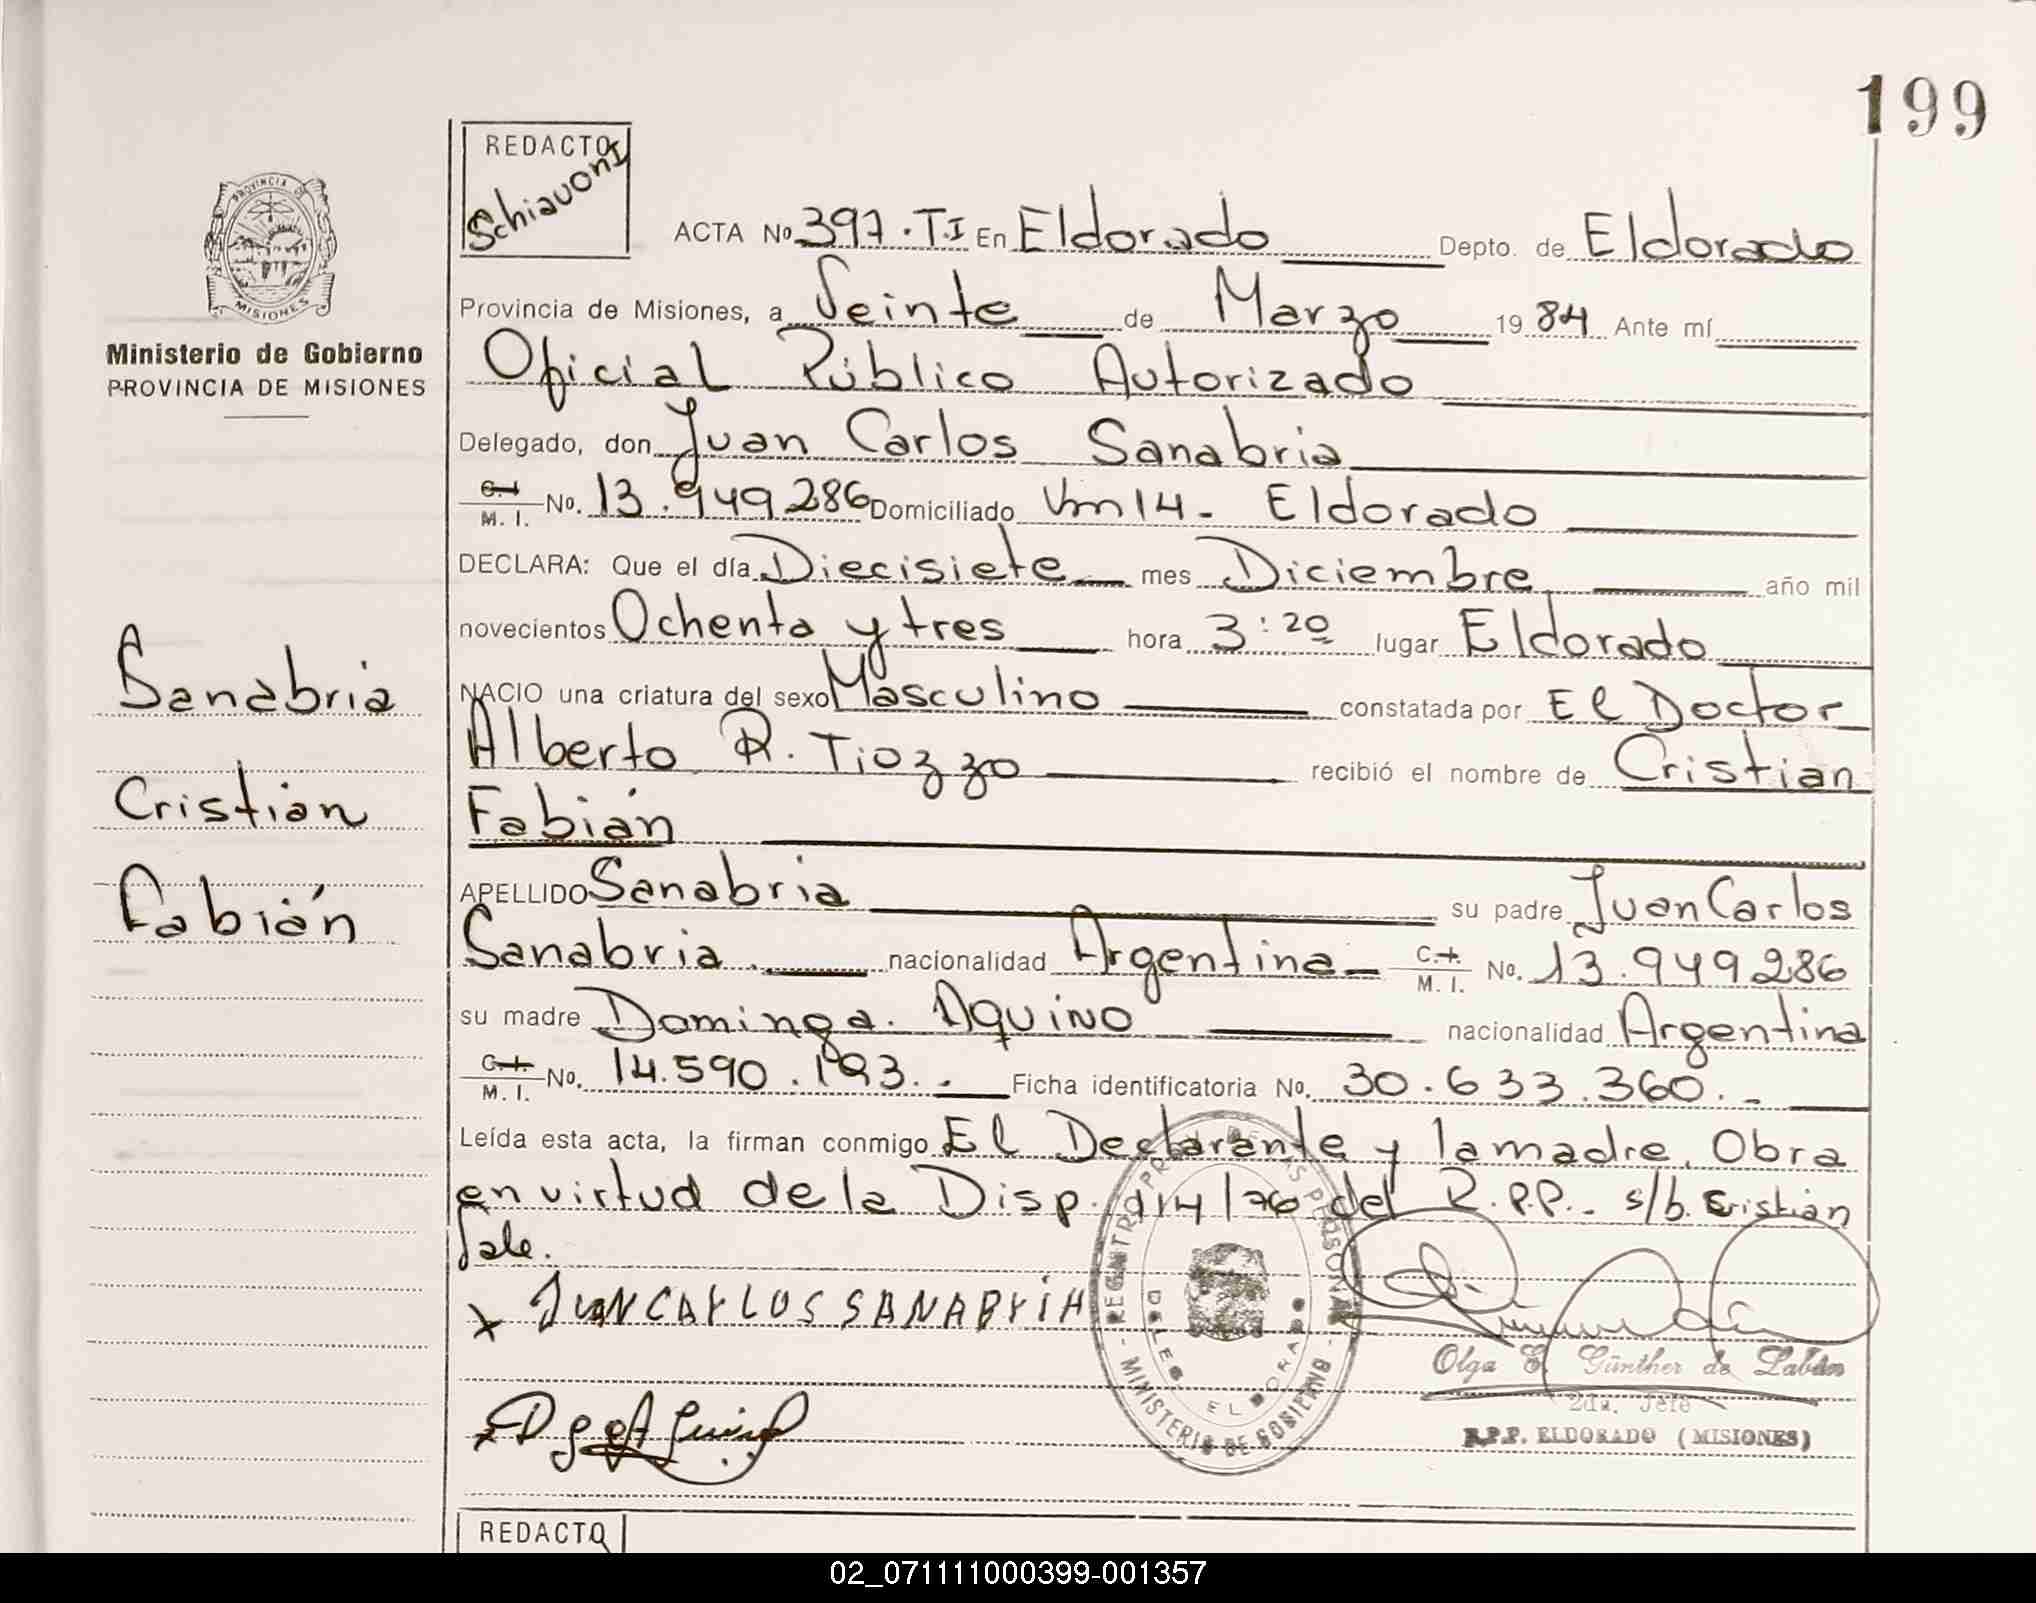 199
REDACTO
Schiavoni
PROVINCIA DE
MISIONES
Ministerio de Gobierno
PROVINCIA DE MISIONES
ACTA No 397.T.I En Eldorado Depto. de Eldorado
Provincia de Misiones, a Veinte de Marzo 19 84 Ante mí
Oficial Público Autorizado
Delegado, don Juan Carlos Sanabria
C.I. M. I. No. 13.949286 Domiciliado Km 14 - Eldorado
DECLARA: Que el día Diecisiete mes Diciembre año mil
novecientos Ochenta y tres hora 3:20 lugar Eldorado
NACIO una criatura del sexo Masculino constatada por El Doctor
Alberto R. Tiozzo recibió el nombre de Cristian
Fabián
APELLIDO Sanabria su padre Juan Carlos
Sanabria nacionalidad Argentina C.I. M. I. No. 13.949286
su madre Dominga Aquino nacionalidad Argentina
C.I. M. I. No. 14.590.193 Ficha identificatoria No. 30.633.360.-
Leída esta acta, la firman conmigo El Declarante y la madre. Obra
en virtud de la Disp. 914/76 del R.P.P.- s/b. Cristian
Vale.
Sanabria
Cristian
Fabián
x JUAN CArLOS SANABrIA
MINISTERIO DE GOBIERNO
ELDORADO
Olga E. Günther de Labán
2da. Jefe
R.P.P. ELDORADO (MISIONES)
REDACTO
02_071111000399-001357